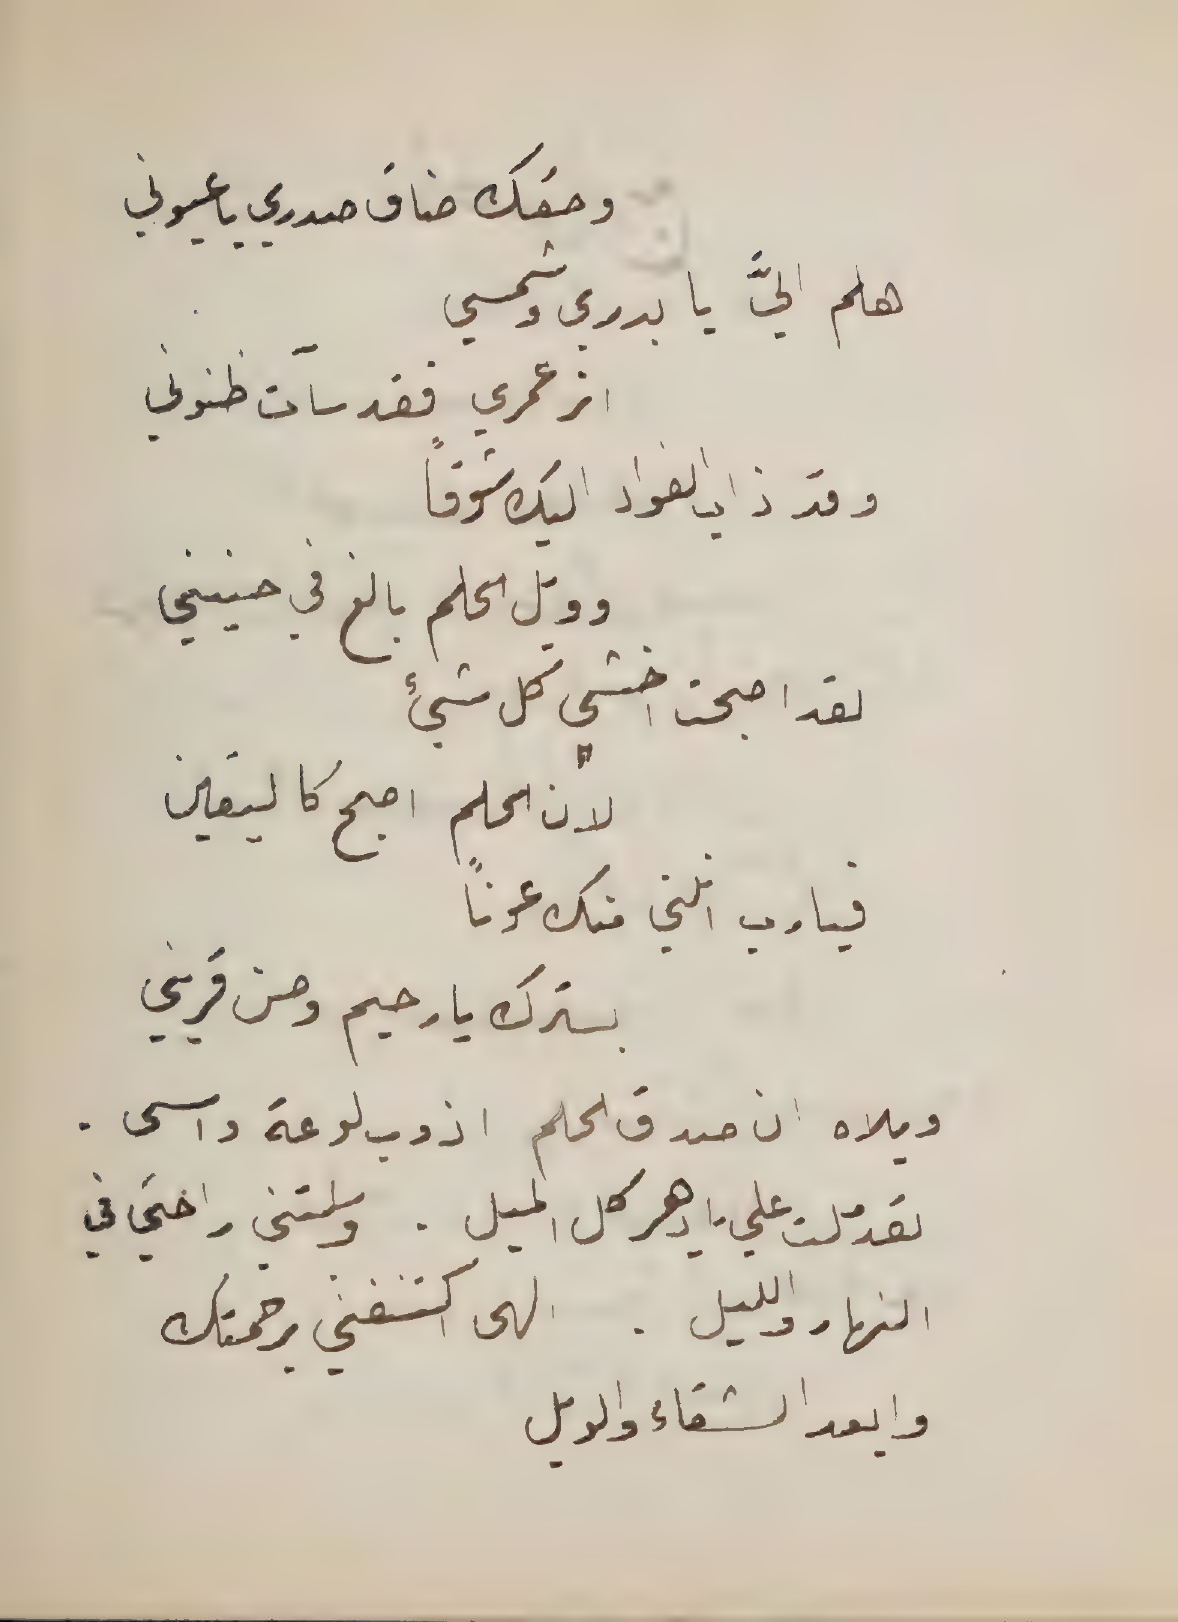 وحقك ضاق صدري يا عيوني
هلم اليَّ يا بدري وشمسي
انر عمري فقد سآت ظنوني
وقد ذاب الفواد اليك شوقاً
وويل الحلم بالغ في حنيني
لقد اصبحت اخشى كل شيئ
لان الحلم اصبح كاليقين
فيارب انلني منك عوناً
بسترك يا رحيم وصن قريني
ويلاه ان صدق الحلم اذوب لوعة واسى .
لقد ملت علي يا دهر كل الميل . وسلبتني راحتي في
النهار والليل . الهى اكتنفني برحمتك
وابعد الشقاء والويل